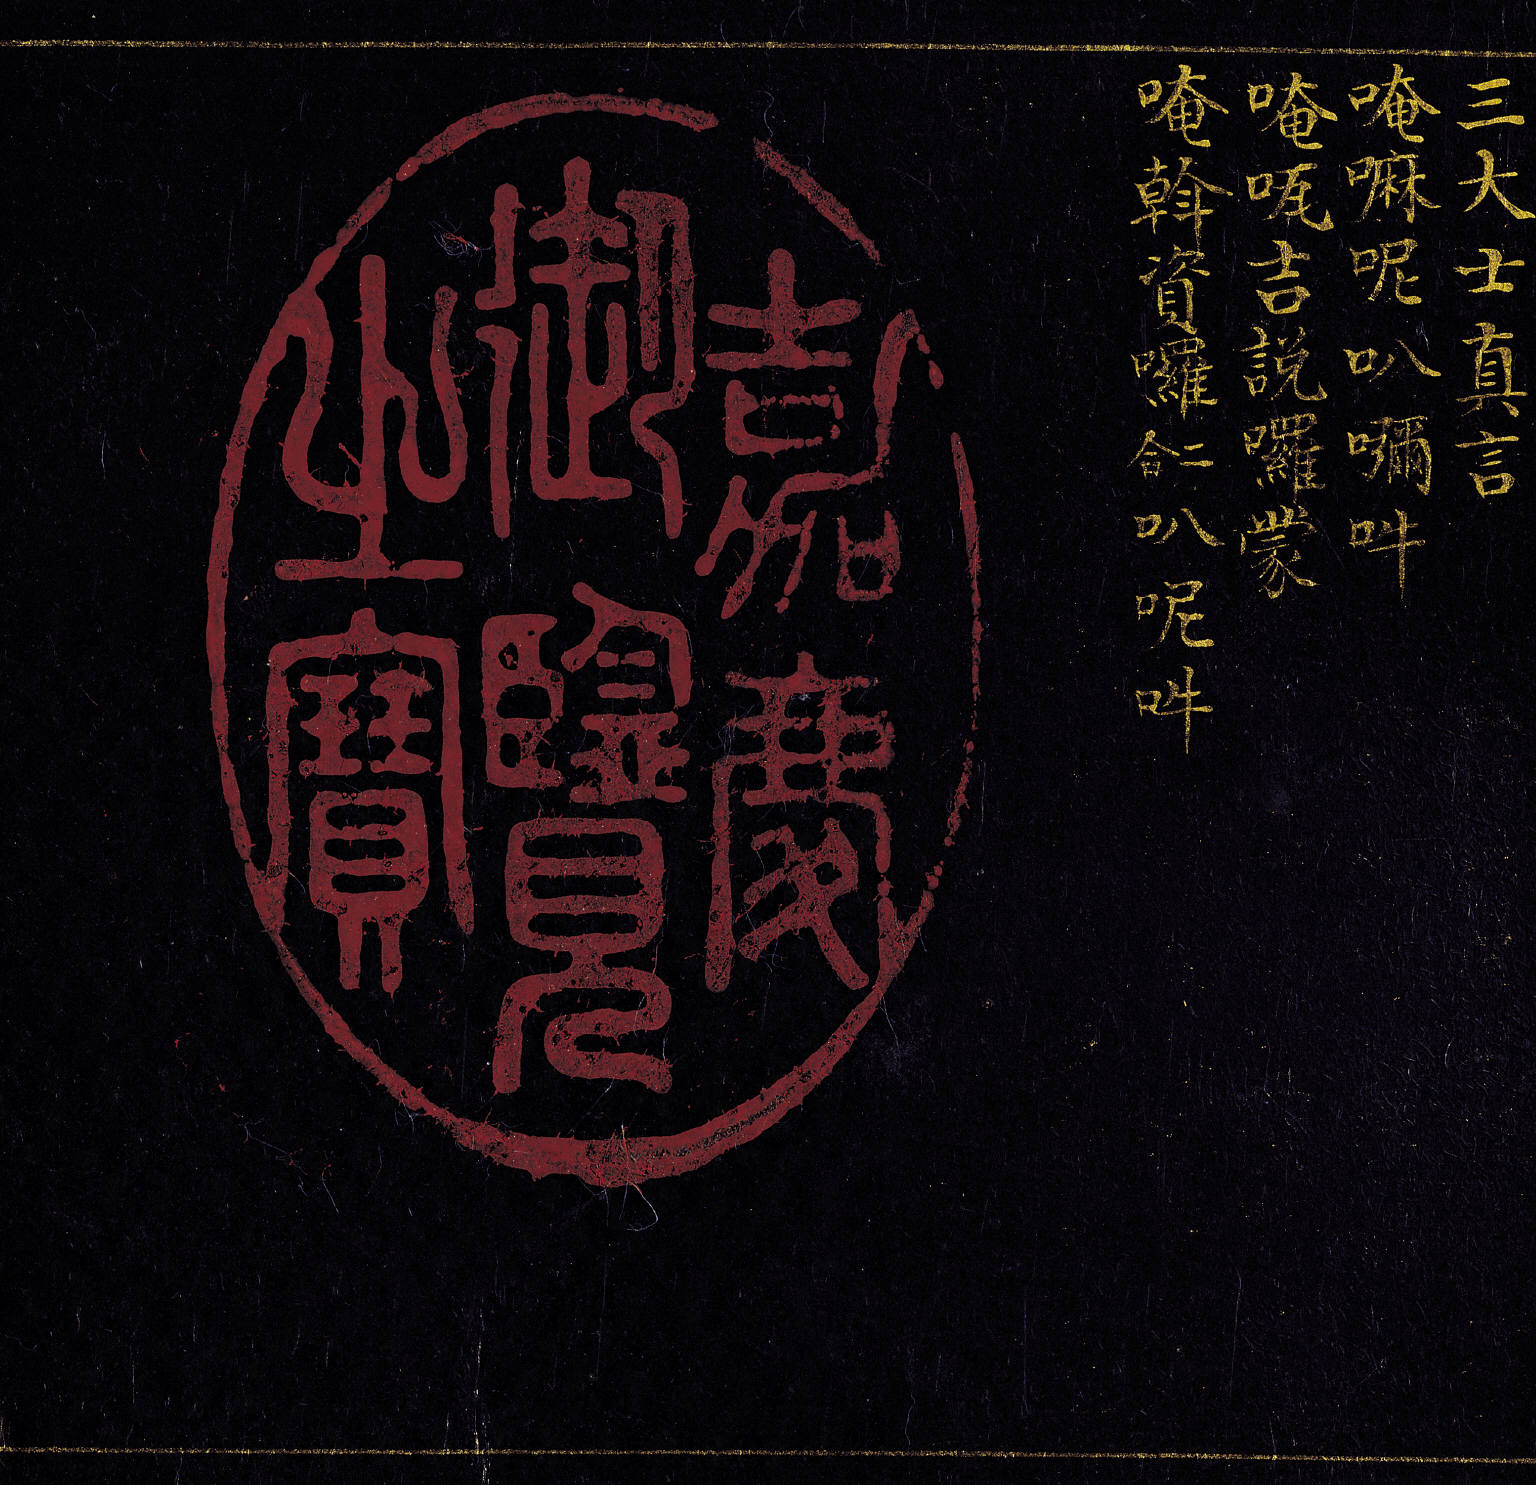 三大士真言
唵嘛呢叭嚩吽
唵㖇吉説囉蒙
唵斡資囉二合叭呢吽
嘉慶
御覽
之寶